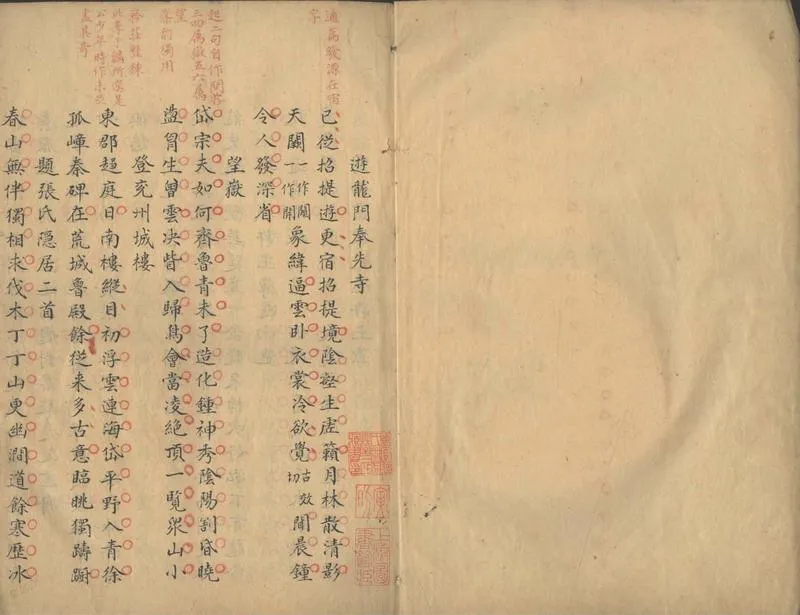 遊龍門奉先寺
字
已從招提遊更宿招提境陰壑生虛籟月林散清影
天闕一作一作開象緯逼雲卧衣裳冷欲覺古效切聞晨鐘
令人發深省
起二句自作問答
三四爲嶽五六爲
望
望嶽
岱宗夫如何齊魯青未了造化鍾神秀陰陽割昏曉
盪胷生曾雲决眥入歸鳥會當凌絶頂一覧衆山小
登兖州城樓
公少年時作未必
盡其奇
東郡趨庭日南樓縱目初浮雲連海岱平野入青徐
孤嶂秦碑在荒城魯殿餘從来多古意臨眺獨躊躇
題張氏隠居二首
春山無伴獨相求伐木丁丁山更幽澗道餘寒歷冰